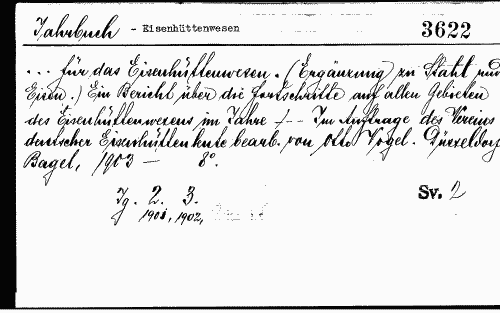 Jahrbuch - Eisenhüttenwesen 3622
... für das Eisenhüttenwesen. (Ergänzung zu Stahl und
Eisen.) Ein Bericht über die Fortschritte auf allen Gebieten
des Eisenhüttenwesens im Jahre /-- Im Auftrage des Vereins
deutscher Eisenhüttenleute bearb. von Otto Vogel. Düsseldorf
Bagel, 1903 — 8°.
Jg. 2. 3. Sv. 2
1901, 1902,